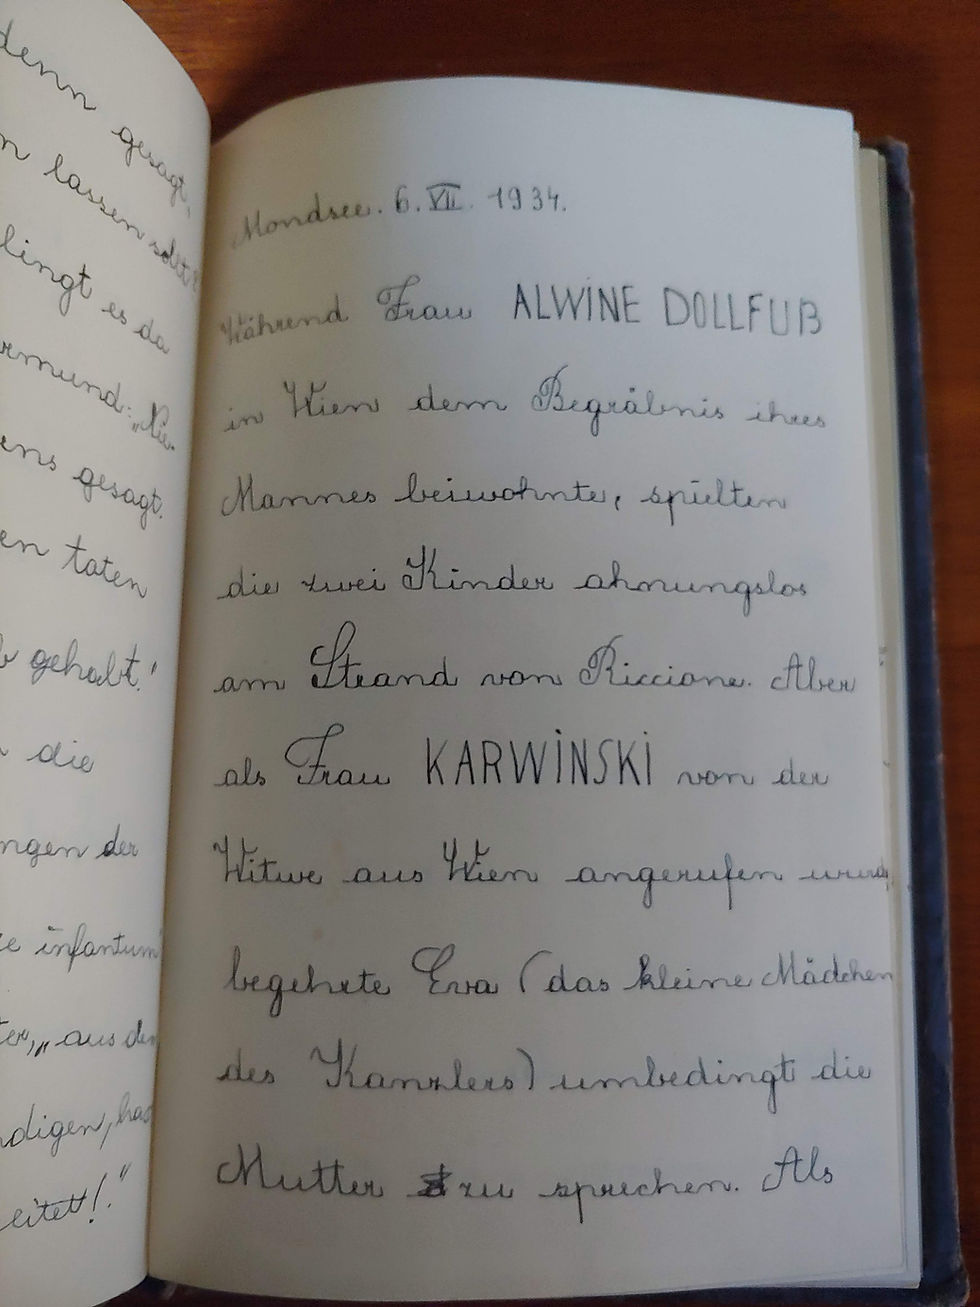 denn gesagt,
n lassen sollt?
lingt es da
rmund: „Nie-
ens gesagt.
en taten
gehabt."
die
ngen der
e infantum
ter, „aus den
digen, has
eitet!."
Mondsee. 6. VII. 1934.
Während Frau ALWINE DOLLFUß
in Wien dem Begräbnis ihres
Mannes beiwohnte, spielten
die zwei Kinder ahnungslos
am Strand von Riccione. Aber
als Frau KARWINSKI von der
Witwe aus Wien angerufen wurde,
begehrte Eva (das kleine Mädchen
des Kanzlers) umbedingt die
Mutter zu sprechen. Als